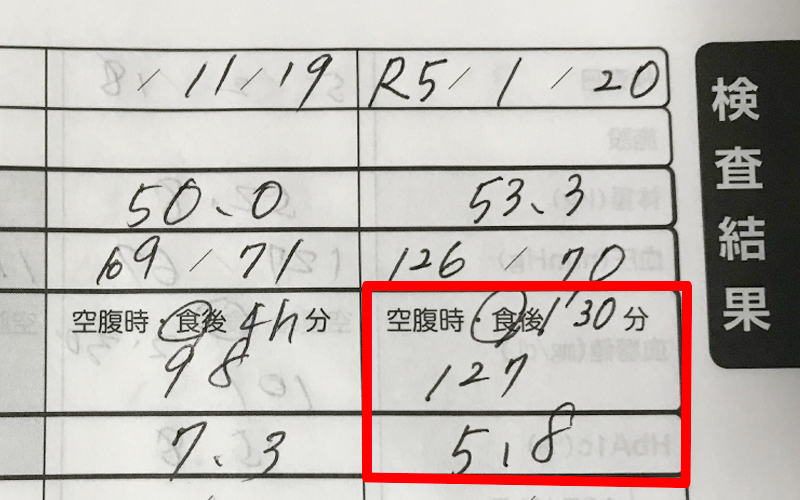 / 11 / 19 R5 / 1 / 20
50.0 53.3
109 / 71 126 / 70
空腹時・食後 4h 分 空腹時・食後 1°30 分
98 127
7.3 5.8
検査結果